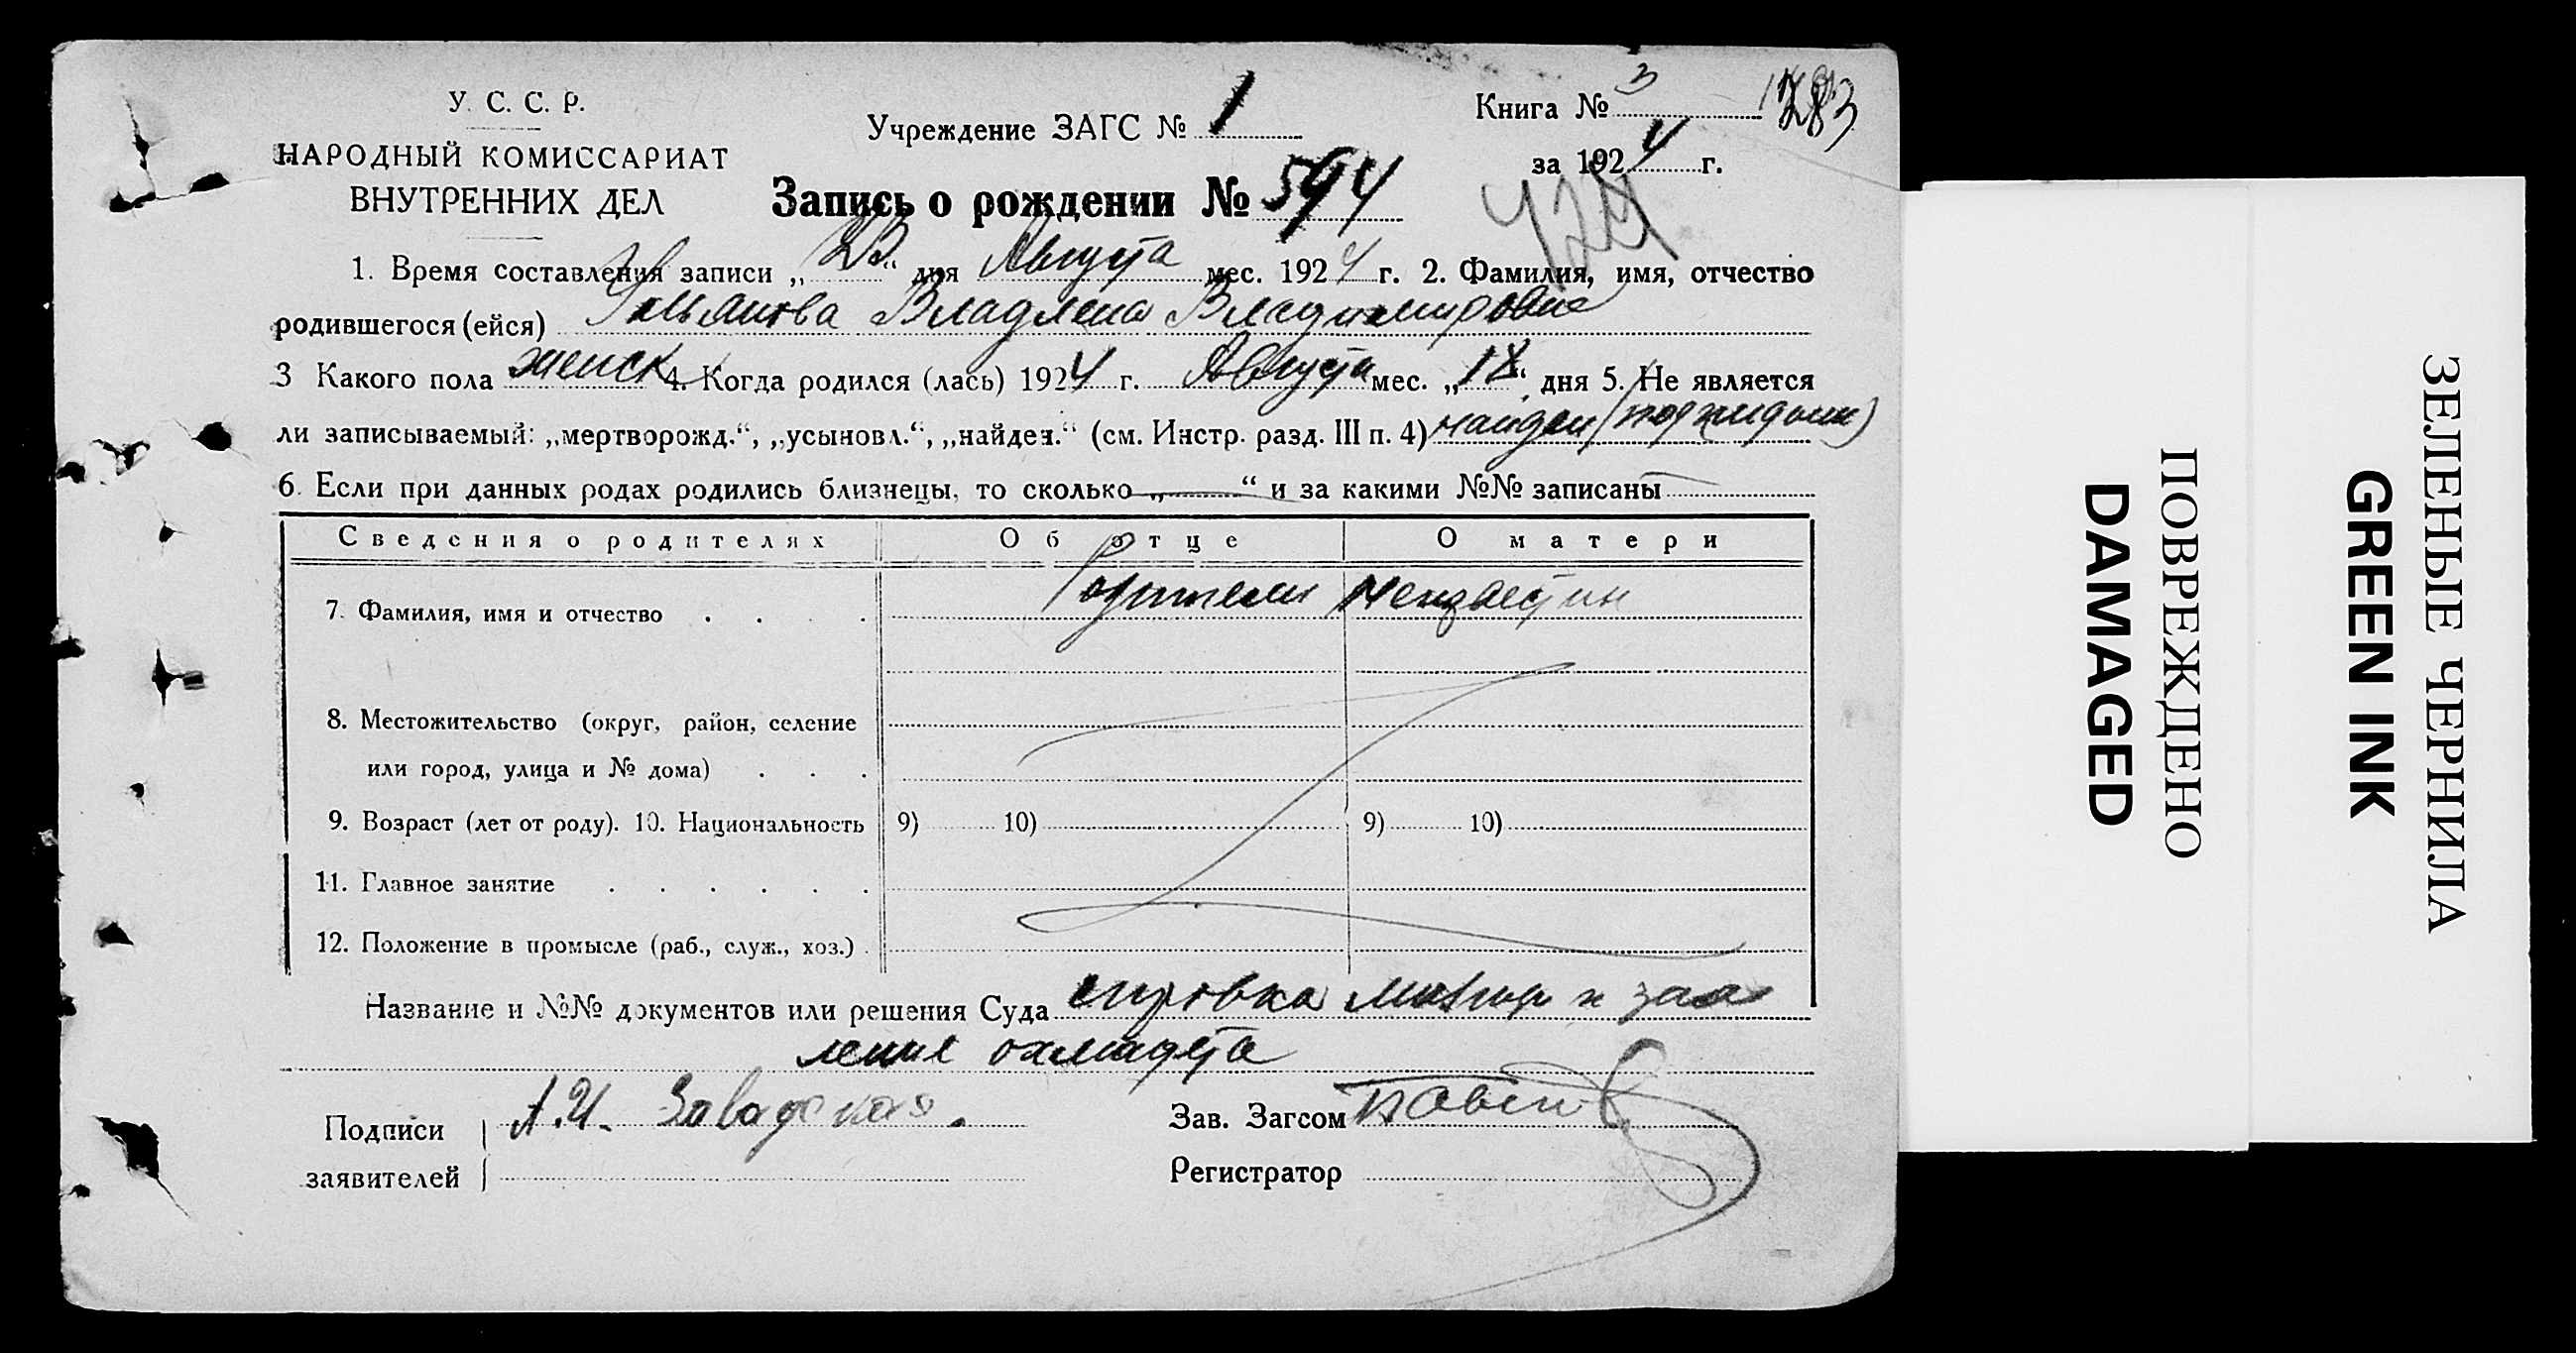 У. С. С. Р.
НАРОДНЫЙ КОМИССАРИАТ
ВНУТРЕННИХ ДЕЛ
Учреждение ЗАГС № 1
Книга № 3
283
за 1924 г.
Запись о рождении № 594
424
1. Время составления записи „23“ дня Августа мес. 1924 г. 2. Фамилия, имя, отчество
родившегося (ейся) Ульянова Владлена Владимировна
3 Какого пола женск 4. Когда родился (лась) 1924 г. Августа мес. „18“ дня 5. Не является
ли записываемый: „мертворожд.“, „усыновл.“, „найден.“ (см. Инстр. разд. III п. 4) найден (подкидыш)
6. Если при данных родах родились близнецы, то сколько „—“ и за какими №№ записаны
Сведения о родителях Об отце О матери
7. Фамилия, имя и отчество . . . . Родители неизвестны
8. Местожительство (округ, район, селение
или город, улица и № дома) . . .
9. Возраст (лет от роду). 10. Национальность 9) 10) 9) 10)
11. Главное занятие . . . . . .
12. Положение в промысле (раб., служ., хоз.) .
Название и №№ документов или решения Суда справка и зая
ления охматдета
Подписи А.И. Завадская. Зав. Загсом
заявителей Регистратор
ПОВРЕЖДЕНО
DAMAGED
ЗЕЛЕНЫЕ ЧЕРНИЛА
GREEN INK